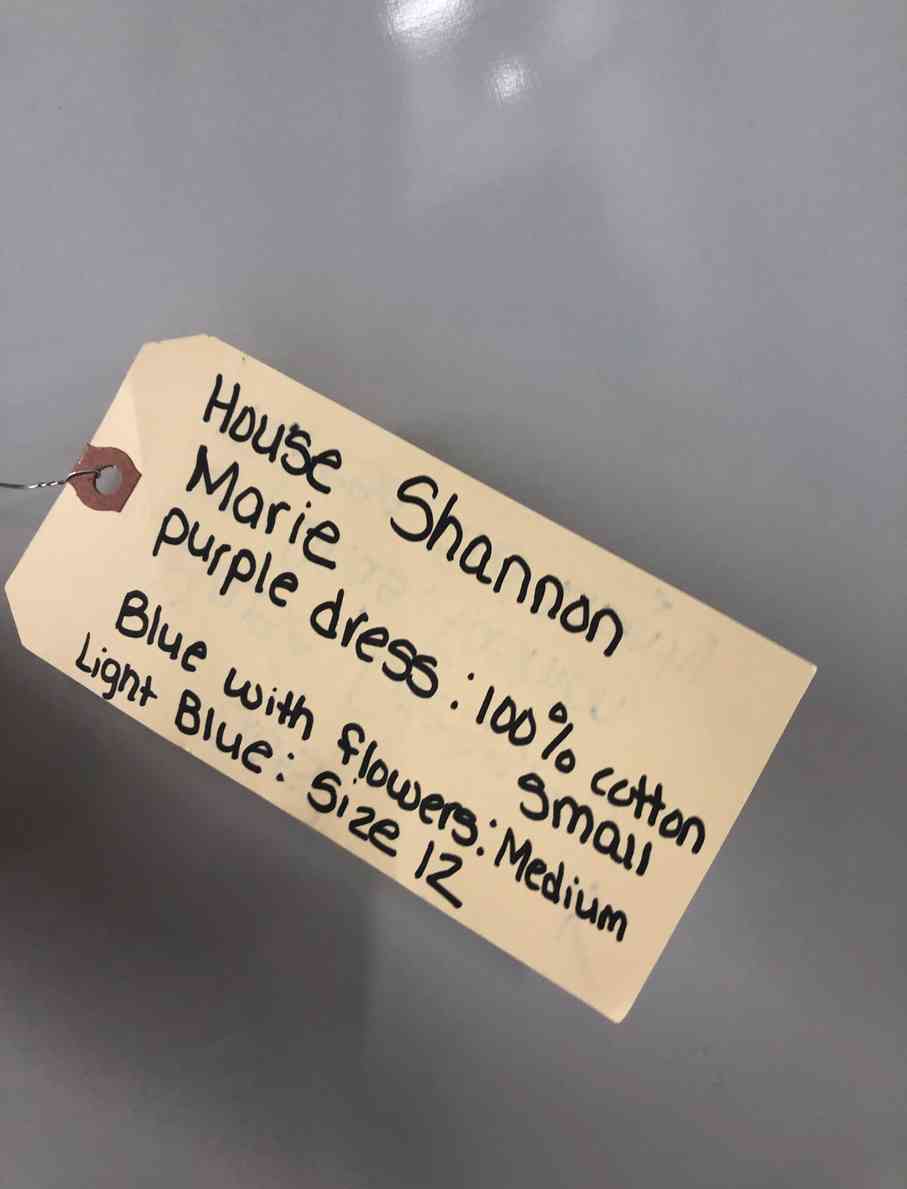 House Shannon
Marie
purple dress: 100% cotton
small
Blue with flowers: Medium
Light Blue: Size 12